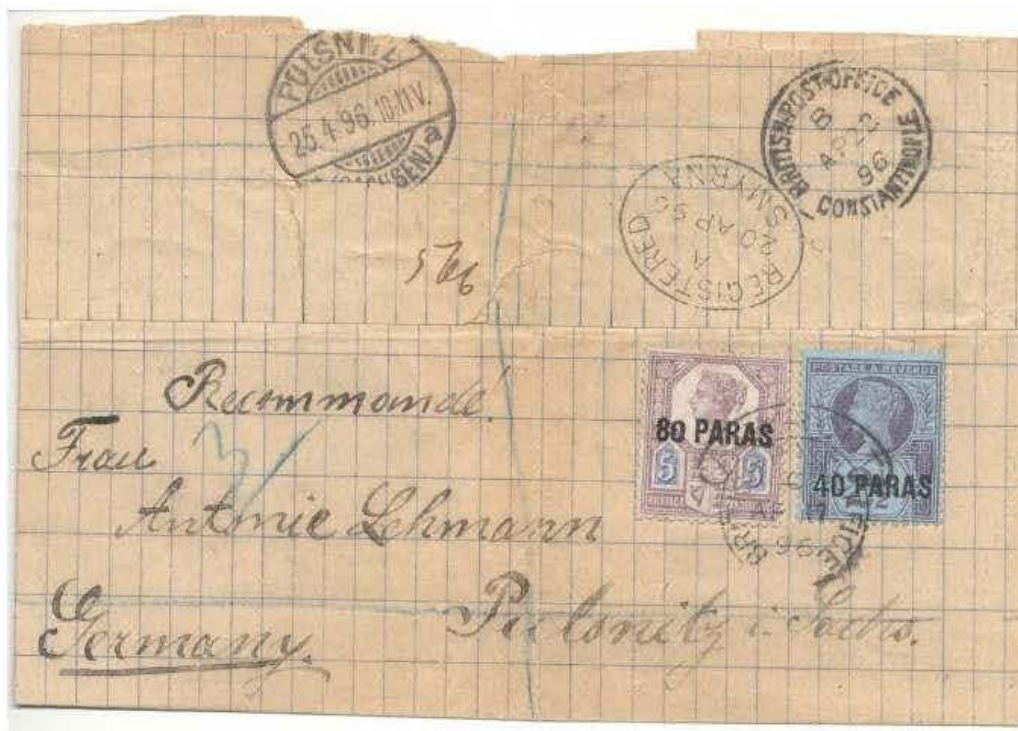 PULSNITZ
25.4.96.10-11V.
(SACHSEN) a
BRITISH-POST-OFFICE
B
AP 22
96
CONSTANTINOPLE
REGISTERED
A
20 AP 96
SMYRNA
566
Recommandé.
Frau
Antonie Lehmann
Germany.
Pulsnitz i. Sachs.
80 PARAS
5 5
POSTAGE & REVENUE
40 PARAS
AP 17
96